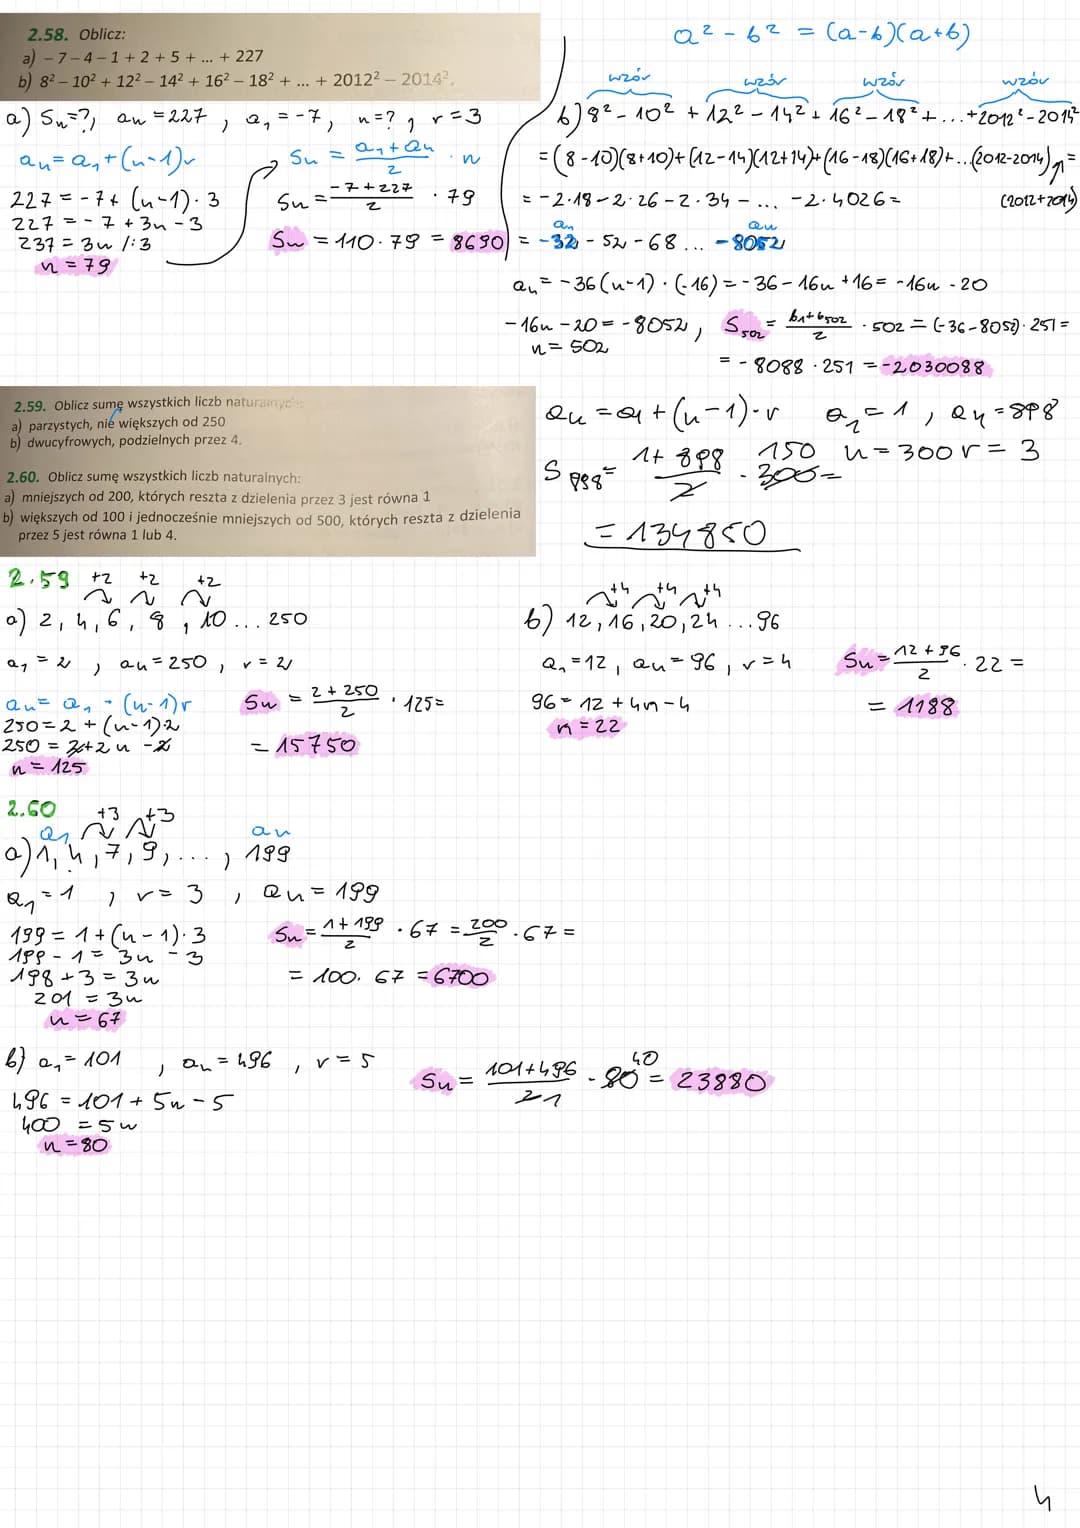 2.58. Oblicz:
a) – 7 – 4 – 1 + 2 + 5 + ... + 227
b) 8² – 10² + 12² – 14² + 16² – 18² + ... + 2012² – 2014².
a) Sn=?, an=227, a₁=-7, n=?, r=3
an=a₁+(n-1)r
227=-7+(n-1)·3
227=-7+3n-3
237=3n /:3
n=79
Sn = (a₁+an)/2 · n
Sn = (-7+227)/2 · 79
Sn = 110·79 = 8690
a²-b² = (a-b)(a+b)
wzór wzór wzór wzór
b) 8²-10² + 12²-14² + 16²-18²+...+2012²-2014²
=(8-10)(8+10)+(12-14)(12+14)+(16-18)(16+18)+...(2012-2014)·(2012+2014)=
= -2·18-2·26-2·34-... -2·4026=
an an
= -32-52-68... -8052
an=-36(n-1)·(-16)=-36-16n+16=-16n-20
-16n-20=-8052, S₅₀₂ = (b₁+b₅₀₂)/2 · 502 = (-36-8052)·251=
n=502
= -8088·251 = -2030088
2.59. Oblicz sumę wszystkich liczb naturalnych:
a) parzystych, nie większych od 250
b) dwucyfrowych, podzielnych przez 4.
2.60. Oblicz sumę wszystkich liczb naturalnych:
a) mniejszych od 200, których reszta z dzielenia przez 3 jest równa 1
b) większych od 100 i jednocześnie mniejszych od 500, których reszta z dzielenia
przez 5 jest równa 1 lub 4.
an=a₁+(n-1)·r a₁=1, an=898
S₈₉₈= (1+898)/2 · 300= 150 n=300 r=3
=134850
2.59 +2 +2 +2
a) 2, 4, 6, 8, 10... 250
a₁=2, an=250, r=2
an=a₁+(n-1)r
250=2+(n-1)·2
250=2+2n-2
n=125
Sn = (2+250)/2 · 125=
= 15750
+4 +4 +4
b) 12, 16, 20, 24...96
a₁=12, an=96, r=4
96=12+4n-4
n=22
Sn=(12+96)/2 · 22=
= 1188
2.60 +3 +3
a₁ an
a) 1, 4, 7, 9, ..., 199
a₁=1, r=3, an=199
199=1+(n-1)·3
199-1=3n-3
198+3=3n
201=3n
n=67
Sn=(1+199)/2 · 67=200/2 · 67=
= 100·67=6700
b) a₁=101, an=496, r=5
496=101+5n-5
400=5n
n=80
Sn= (101+496)/2 1 · 80 40 = 23880
4